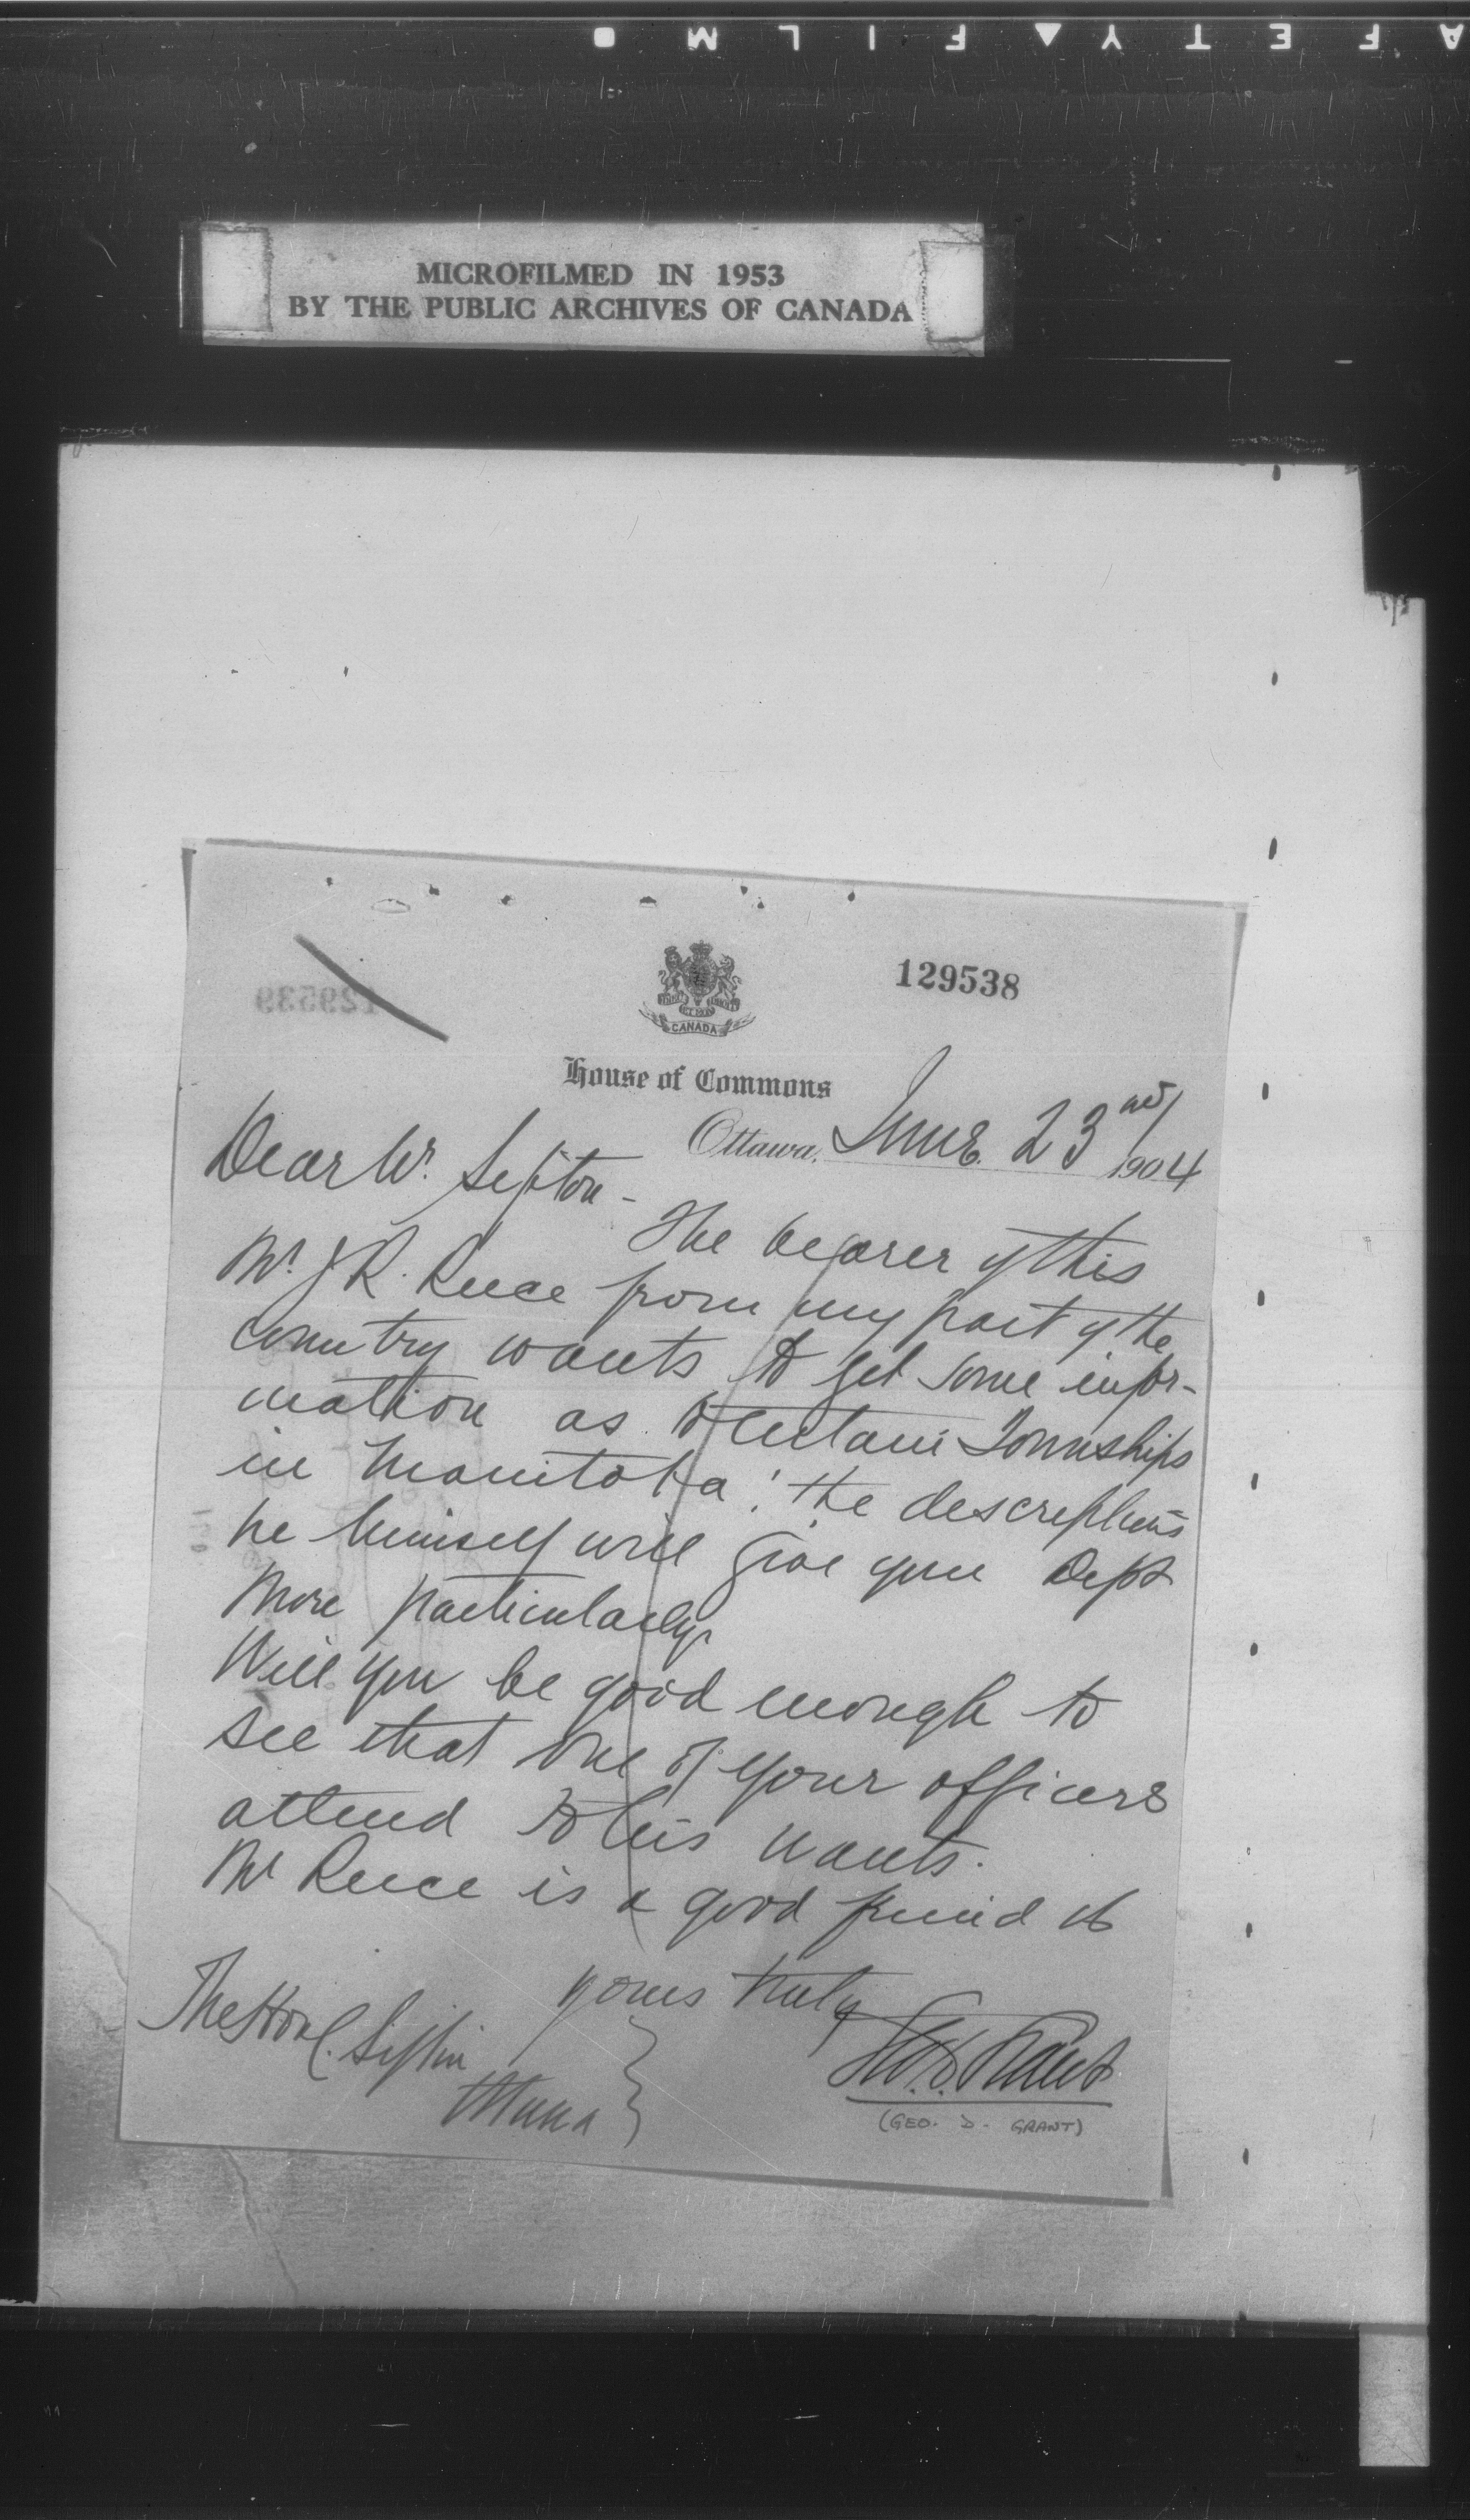 SAFETY▲FILM ●
MICROFILMED IN 1953
BY THE PUBLIC ARCHIVES OF CANADA
129538
129539
CANADA
House of Commons
Ottawa, June 23rd 1904
Dear Mr. Sifton -
The bearer of this
Mr. J R. Reece from my part of the
country wants to get some infor-
mation as to certain Townships
in Manitoba: the descriptions
he himself will give your Dept
more particularly.
Will you be good enough to
see that one of your officers
attend to his wants.
Mr Reece is a good friend of
yours truly
Geo. D. Grant
(GEO. D. GRANT)
The Hon C. Sifton
Ottawa